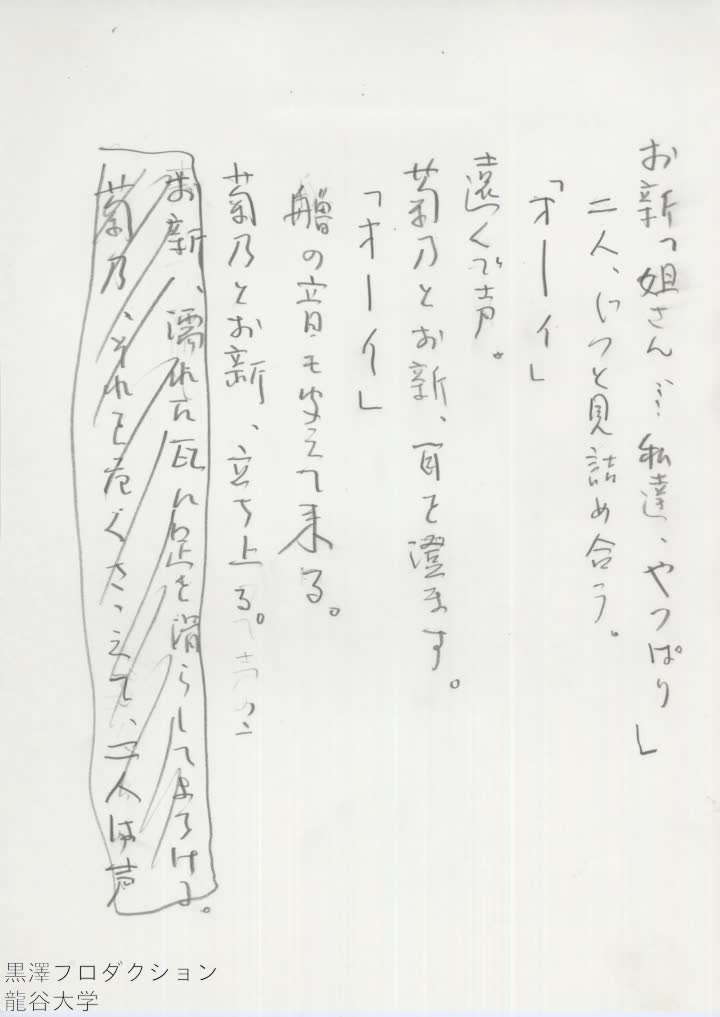 お新「姐さん…私達、やっぱり」
二人、じっと見詰め合う。
「オーイ」
遠くで声。
菊乃とお新、耳を澄ます。
「オーイ」
艪の音も聞えて来る。
菊乃とお新、立ち上る。
お新、濡れた瓦に足を滑らしてよろける。
菊乃、それを危くさゝえて、二人は声
黒澤プロダクション
龍谷大学